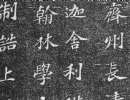 齊州長清
迦舍利
翰林學
制誥上